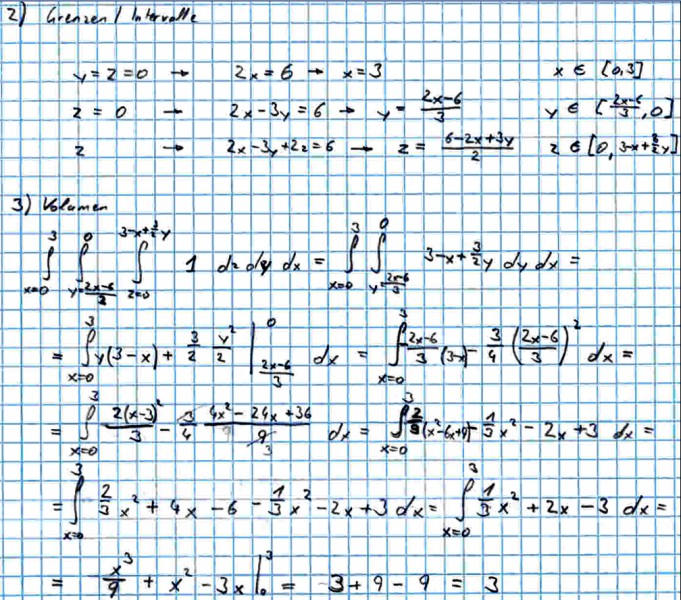 2) Grenzen / Intervalle
y = z = 0 → 2x = 6 → x = 3 x ∈ [0,3]
z = 0 → 2x - 3y = 6 → y = (2x-6)/3 y ∈ [(2x-6)/3, 0]
z → 2x - 3y + 2z = 6 → z = (6-2x+3y)/2 z ∈ [0, 3-x+3/2y]
3) Volumen
∫_{x=0}^{3} ∫_{y=(2x-6)/3}^{0} ∫_{z=0}^{3-x+3/2y} 1 dz dy dx = ∫_{x=0}^{3} ∫_{y=(2x-6)/3}^{0} 3-x+3/2y dy dx =
= ∫_{x=0}^{3} y(3-x) + 3/2 y²/2 |_{(2x-6)/3}^{0} dx = ∫_{x=0}^{3} -(2x-6)/3 (3-x) - 3/4 ((2x-6)/3)² dx =
= ∫_{x=0}^{3} 2(x-3)²/3 - 3/4 (4x² - 24x + 36)/9 3 dx = ∫_{x=0}^{3} 2/3 (x²-6x+9) - 1/3 x² - 2x + 3 dx =
= ∫_{x=0}^{3} 2/3 x² + 4x - 6 - 1/3 x² - 2x + 3 dx = ∫_{x=0}^{3} 1/3 x² + 2x - 3 dx =
= x³/9 + x² - 3x |_{0}^{3} = 3 + 9 - 9 = 3